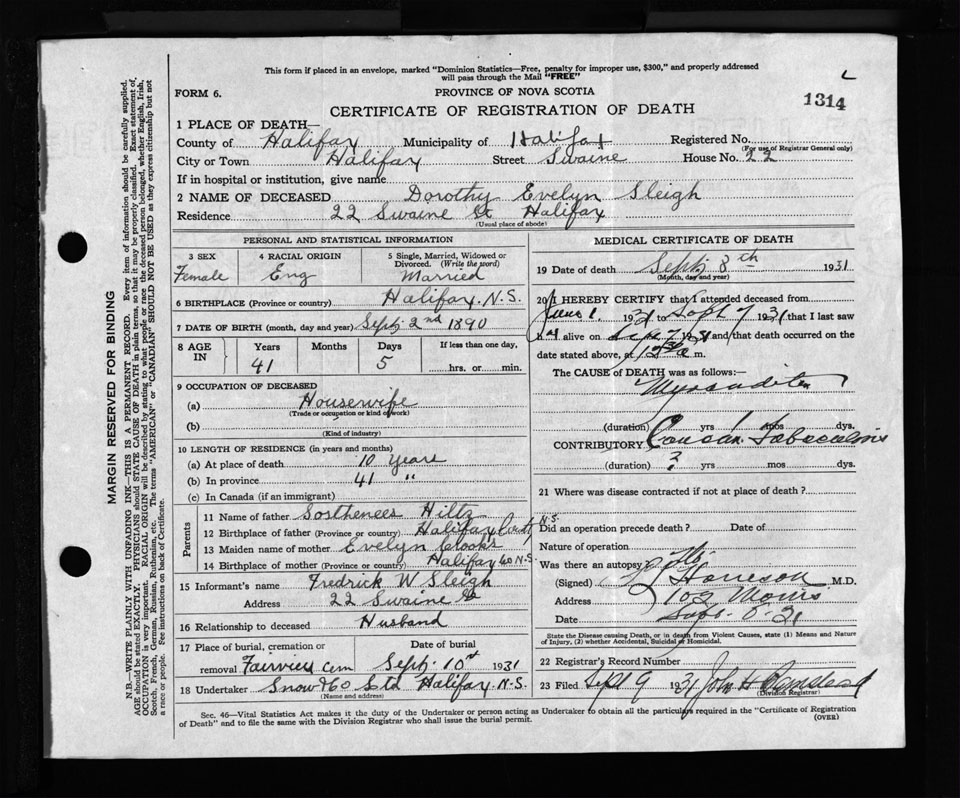 This form if placed in an envelope, marked "Dominion Statistics—Free, penalty for improper use, $300," and properly addressed
will pass through the Mail "FREE"
FORM 6.
PROVINCE OF NOVA SCOTIA
1314
CERTIFICATE OF REGISTRATION OF DEATH
1 PLACE OF DEATH—
County of Halifax Municipality of Halifax Registered No.
(For use of Registrar General only)
City or Town Halifax Street Swaine House No. 22
If in hospital or institution, give name
2 NAME OF DECEASED Dorothy Evelyn Sleigh
Residence 22 Swaine St Halifax
(Usual place of abode)
PERSONAL AND STATISTICAL INFORMATION
3 SEX
Female
4 RACIAL ORIGIN
Eng
5 Single, Married, Widowed or
Divorced. (Write the word)
Married
6 BIRTHPLACE (Province or country) Halifax. N.S.
7 DATE OF BIRTH (month, day and year) Sept 2nd 1890
8 AGE IN
Years
41
Months
Days
5
If less than one day,
hrs. or min.
9 OCCUPATION OF DECEASED
(a) Housewife
(Trade or occupation or kind of work)
(b)
(Kind of industry)
10 LENGTH OF RESIDENCE (in years and months)
(a) At place of death 10 years
(b) In province 41 "
(c) In Canada (if an immigrant)
Parents
11 Name of father Sosthenees Hiltz
12 Birthplace of father (Province or country) Halifax County N.S.
13 Maiden name of mother Evelyn
14 Birthplace of mother (Province or country) Halifax Co N.S
15 Informant's name Fredrick W Sleigh
Address 22 Swaine St
16 Relationship to deceased Husband
17 Place of burial, cremation or
removal Fairview Cem
Date of burial
Sept. 10 1931
18 Undertaker Snow & Co Ltd Halifax. N.S.
(Name and address)
MEDICAL CERTIFICATE OF DEATH
19 Date of death Sept 8th 1931
(Month, day and year)
20 I HEREBY CERTIFY that I attended deceased from
June 1. 1931 to Sept 7 1931 that I last saw
h er alive on Sep 7 1931 and that death occurred on the
date stated above, at m.
The CAUSE of DEATH was as follows:
(duration) yrs 1 mos dys.
CONTRIBUTORY
(duration) ? yrs mos dys.
21 Where was disease contracted if not at place of death?
Did an operation precede death? Date of
Nature of operation
Was there an autopsy? No
(Signed) M.D.
Address 102 Morris
Date Sept. 8. 31
State the Disease causing Death, or in death from Violent Causes, state (1) Means and Nature
of Injury, (2) whether Accidental, Suicidal or Homicidal.
22 Registrar's Record Number
23 Filed Sept 9 1931 John H
(Division Registrar)
Sec. 46—Vital Statistics Act makes it the duty of the Undertaker or person acting as Undertaker to obtain all the particulars required in the "Certificate of Registration
of Death" and to file the same with the Division Registrar who shall issue the burial permit.
(OVER)
MARGIN RESERVED FOR BINDING
N.B.—WRITE PLAINLY WITH UNFADING INK—THIS IS A PERMANENT RECORD. Every item of information should be carefully supplied.
AGE should be stated EXACTLY. PHYSICIANS should STATE CAUSE OF DEATH in plain terms, so that it may be properly classified. Exact statement of
OCCUPATION is very important. RACIAL ORIGIN will be described by stating to what people or race the deceased person belonged, whether English, Irish,
Scotch, French, German, Russian, Ruthenian, etc. The terms "AMERICAN" or "CANADIAN" SHOULD NOT BE USED as they express citizenship but not
a race or people. See instructions on back of Certificate.